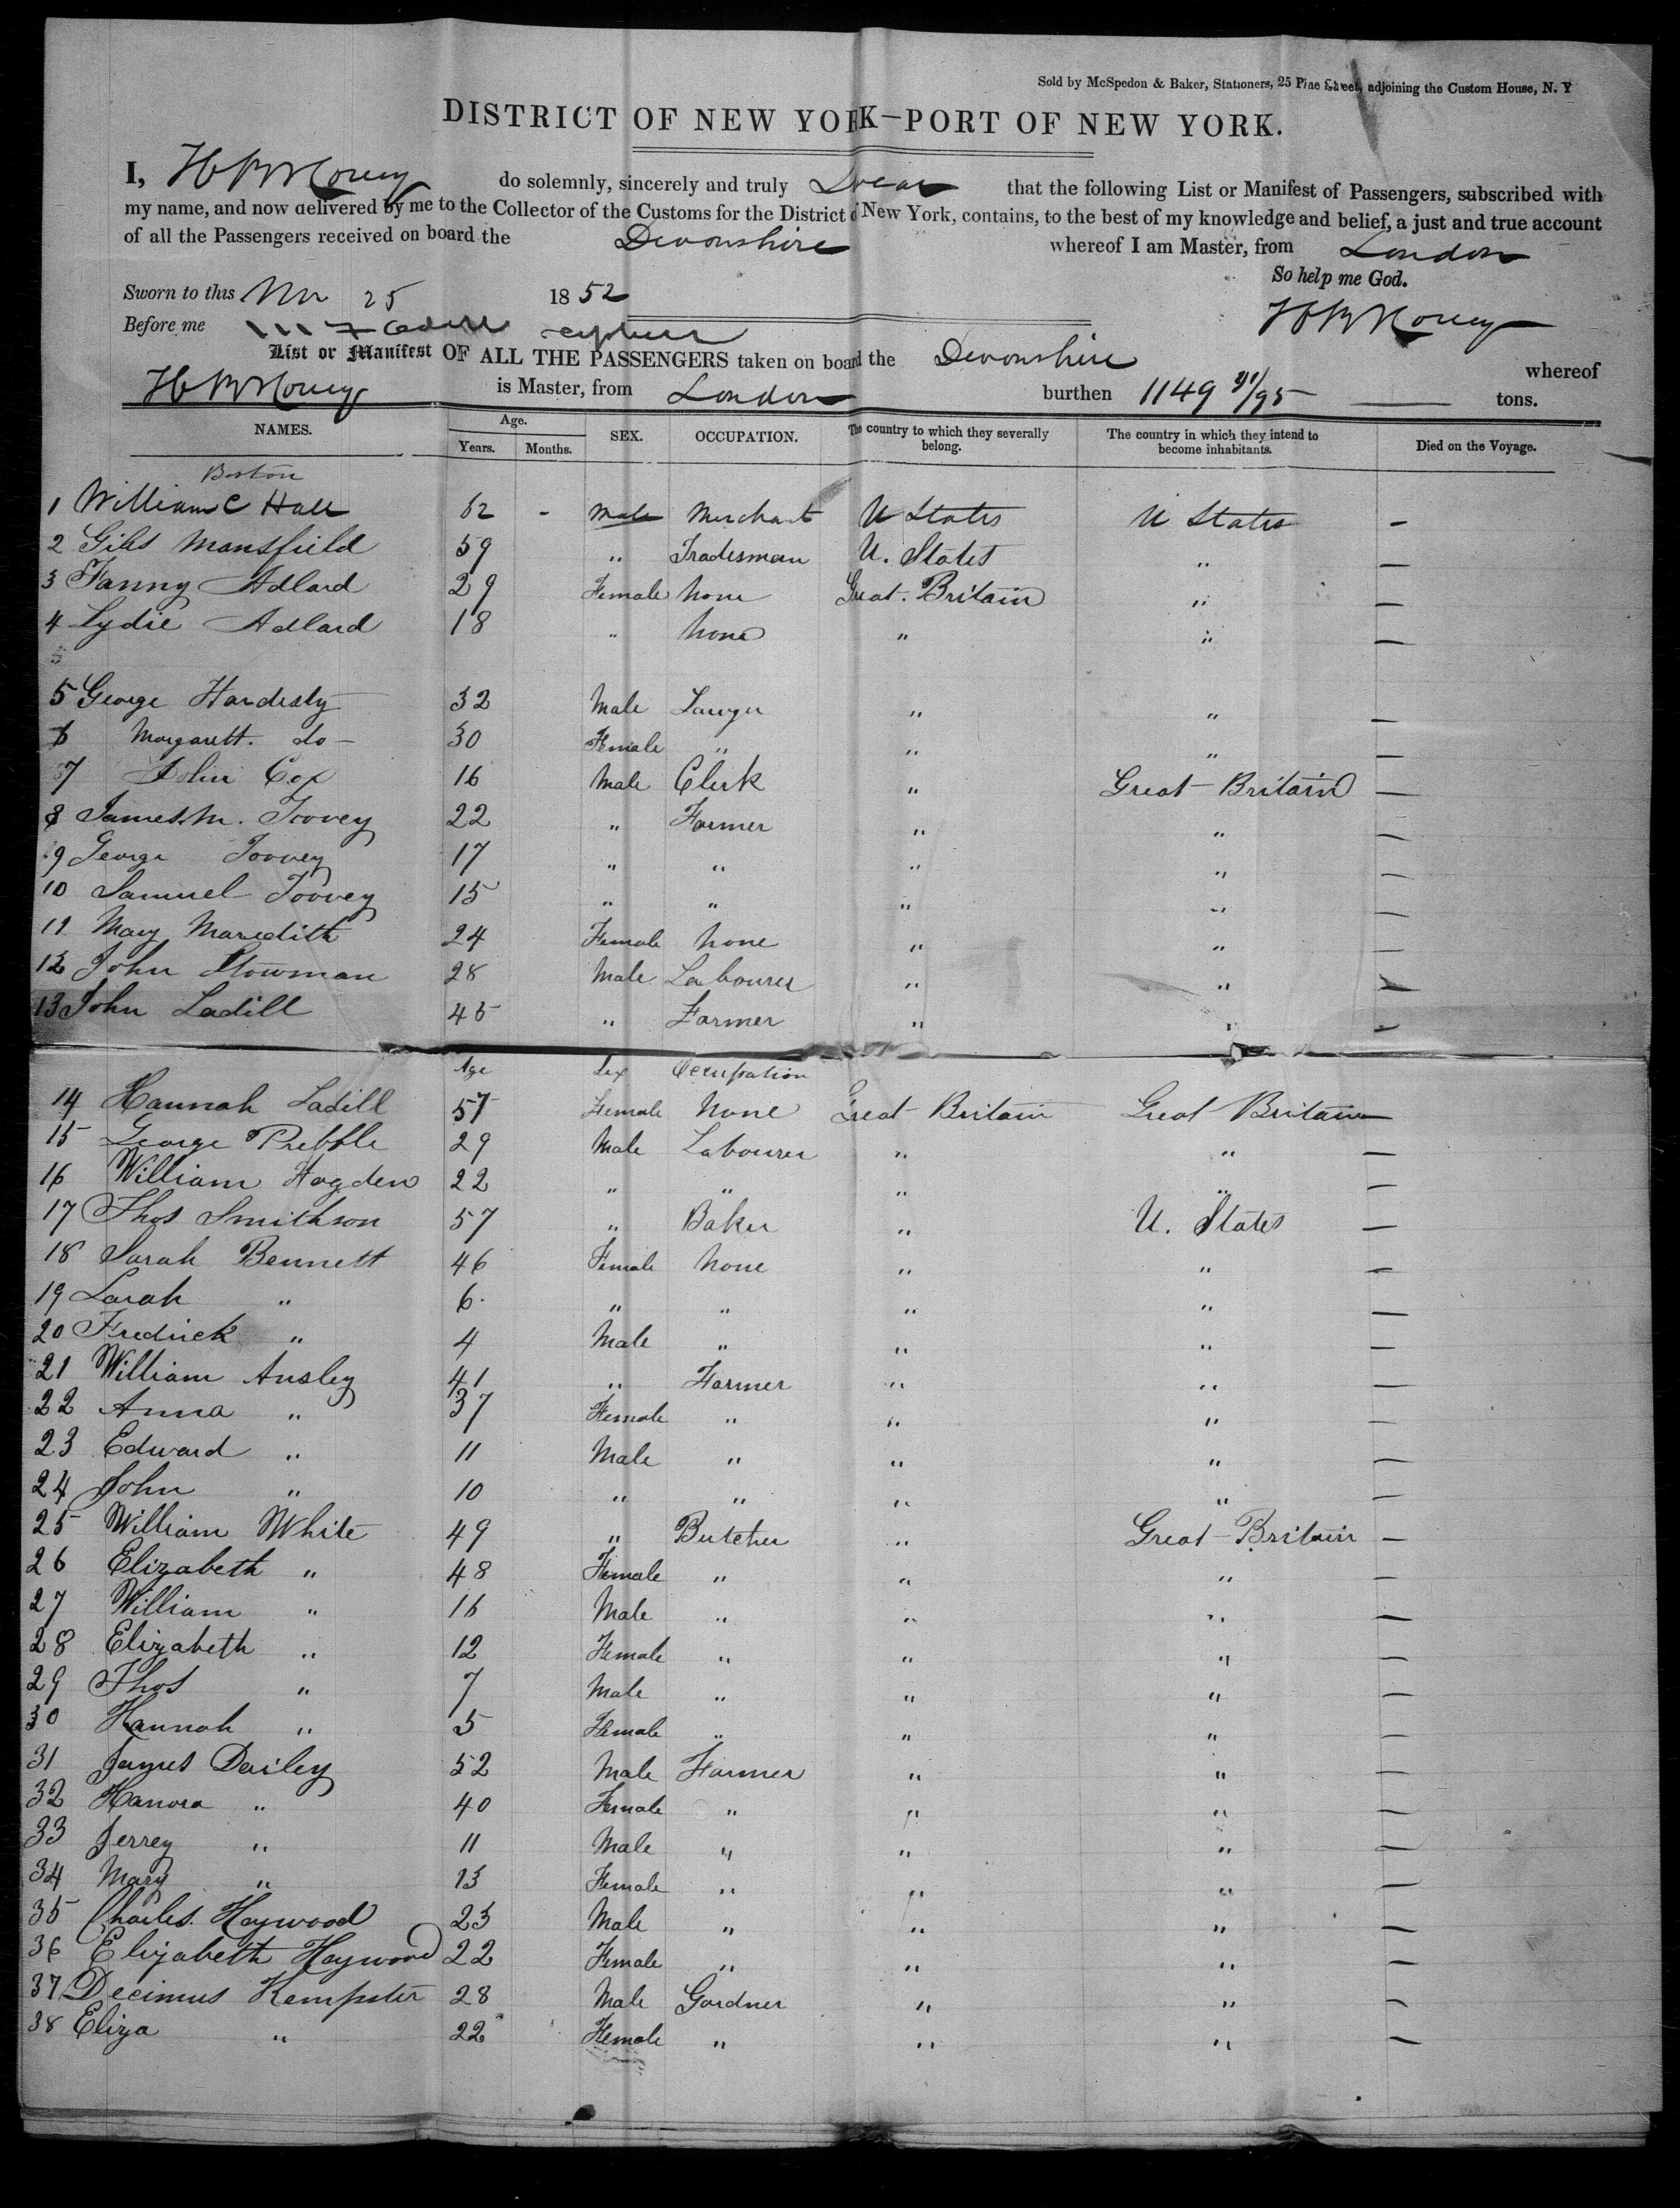 Sold by McSpedon & Baker, Stationers, 25 Pine Street, adjoining the Custom House, N. Y
DISTRICT OF NEW YORK—PORT OF NEW YORK.
I, do solemnly, sincerely and truly Swear that the following List or Manifest of Passengers, subscribed with
my name, and now delivered by me to the Collector of the Customs for the District of New York, contains, to the best of my knowledge and belief, a just and true account
of all the Passengers received on board the Devonshire whereof I am Master, from London
So help me God.
Sworn to this Nov 25 1852
Before me
List or Manifest OF ALL THE PASSENGERS taken on board the Devonshire whereof
is Master, from London burthen 1149 31/95 tons.
NAMES. Age. Years. Months. SEX. OCCUPATION. The country to which they severally belong. The country in which they intend to become inhabitants. Died on the Voyage.
Boston
1 William C Hall 62 - Male Merchant U States U States —
2 Giles Mansfield 59 " Tradesman U. States " —
3 Fanny Adlard 29 Female None Great Britain " —
4 Lydie Adlard 18 " None " " —
5 George Hardesty 32 Male Lawyer " " —
6 Margarett do — 30 Female " " " —
7 John Cox 16 Male Clerk " Great Britain —
8 James M. Toovey 22 " Farmer " " —
9 George Toovey 17 " " " " —
10 Samuel Toovey 15 " " " " —
11 Mary Meredith 24 Female None " " —
12 John Plowman 28 Male Labourer " " —
13 John Ladill 45 " Farmer " " —
Age Sex Occupation
14 Hannah Ladill 57 Female None Great Britain Great Britain —
15 George Prebble 29 Male Labourer " " —
16 William Hogden 22 " " " " —
17 Thos Smithson 57 " Baker " U. States —
18 Sarah Bennett 46 Female None " " —
19 Sarah " 6 " " " " —
20 Fredrick " 4 Male " " " —
21 William Ansley 41 " Farmer " " —
22 Anna " 37 Female " " " —
23 Edward " 11 Male " " " —
24 John " 10 " " " " —
25 William White 49 " Butcher " Great Britain —
26 Elizabeth " 48 Female " " " —
27 William " 16 Male " " " —
28 Elizabeth " 12 Female " " " —
29 Thos " 7 Male " " " —
30 Hannah " 5 Female " " " —
31 James Dailey 52 Male Farmer " " —
32 Hanora " 40 Female " " " —
33 Jerrey " 11 Male " " " —
34 Mary " 13 Female " " " —
35 Charles Haywood 23 Male " " " —
36 Elizabeth Haywood 22 Female " " " —
37 Decimus Kempster 28 Male Gardner " " —
38 Eliza " 22 Female " " " —